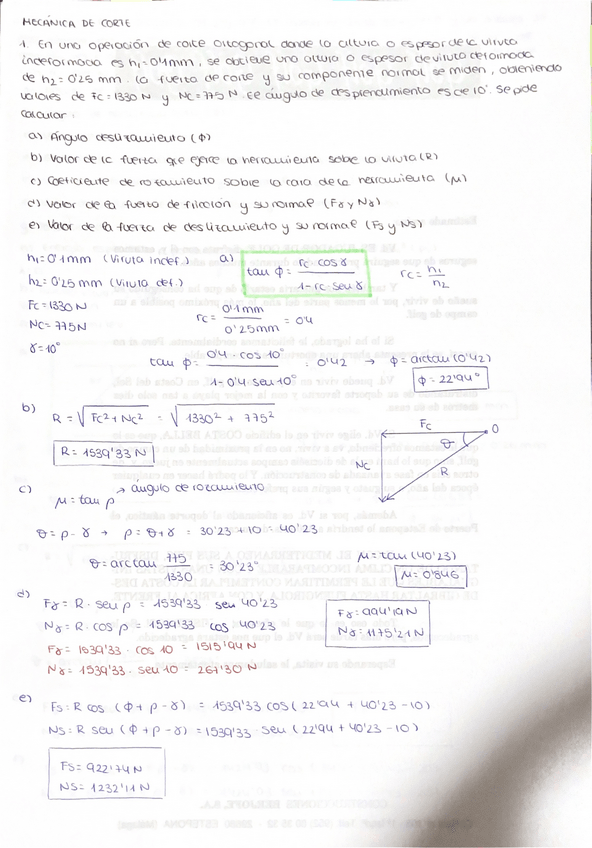 MECÁNICA DE CORTE
1. En una operación de corte ortogonal donde la altura o espesor de la viruta
indeformada es h1=0'1mm, se obtiene una altura o espesor de viruta deformada
de h2=0'25 mm. La fuerza de corte y su componente normal se miden, obteniendo
valores de Fc=1330 N y Nc=775 N. El ángulo de desprendimiento es de 10°. Se pide
calcular:
a) Ángulo deslizamiento (Φ)
b) Valor de la fuerza que ejerce la herramienta sobre la viruta (R)
c) Coeficiente de rozamiento sobre la cara de la herramienta (μ)
d) Valor de la fuerza de fricción y su normal (Fγ y Nγ)
e) Valor de la fuerza de deslizamiento y su normal (Fs y Ns)
h1=0'1mm (Viruta indef.)
h2=0'25 mm (Viruta def.)
Fc=1330 N
Nc=775N
γ=10°
a) tan Φ = rc · cos γ / 1-rc · sen γ
rc = h1 / h2
rc = 0'1mm / 0'25mm = 0'4
tan Φ = 0'4 · cos 10° / 1-0'4 · sen 10° = 0'42 → Φ=arctan (0'42)
Φ=22'94°
b) R = √Fc²+Nc² = √1330² + 775²
R=1539'33 N
Fc
O
θ
Nc
R
c) μ = tan ρ → ángulo de rozamiento
θ=ρ-γ → ρ=θ+γ = 30'23+10 = 40'23
θ=arctan 775 / 1330 = 30'23°
μ=tan (40'23)
μ=0'846
d) Fγ = R · sen ρ = 1539'33 sen 40'23
Nγ = R · cos ρ = 1539'33 cos 40'23
Fγ = 1539'33 · cos 10 = 1515'94 N
Nγ = 1539'33 · sen 10 = 267'30 N
Fγ=994'19 N
Nγ=1175'21 N
e) Fs=R cos (Φ+ρ-γ) = 1539'33 cos (22'94 + 40'23 - 10)
Ns=R sen (Φ+ρ-γ) = 1539'33 · sen (22'94 + 40'23 - 10)
Fs=922'74 N
Ns=1232'11 N